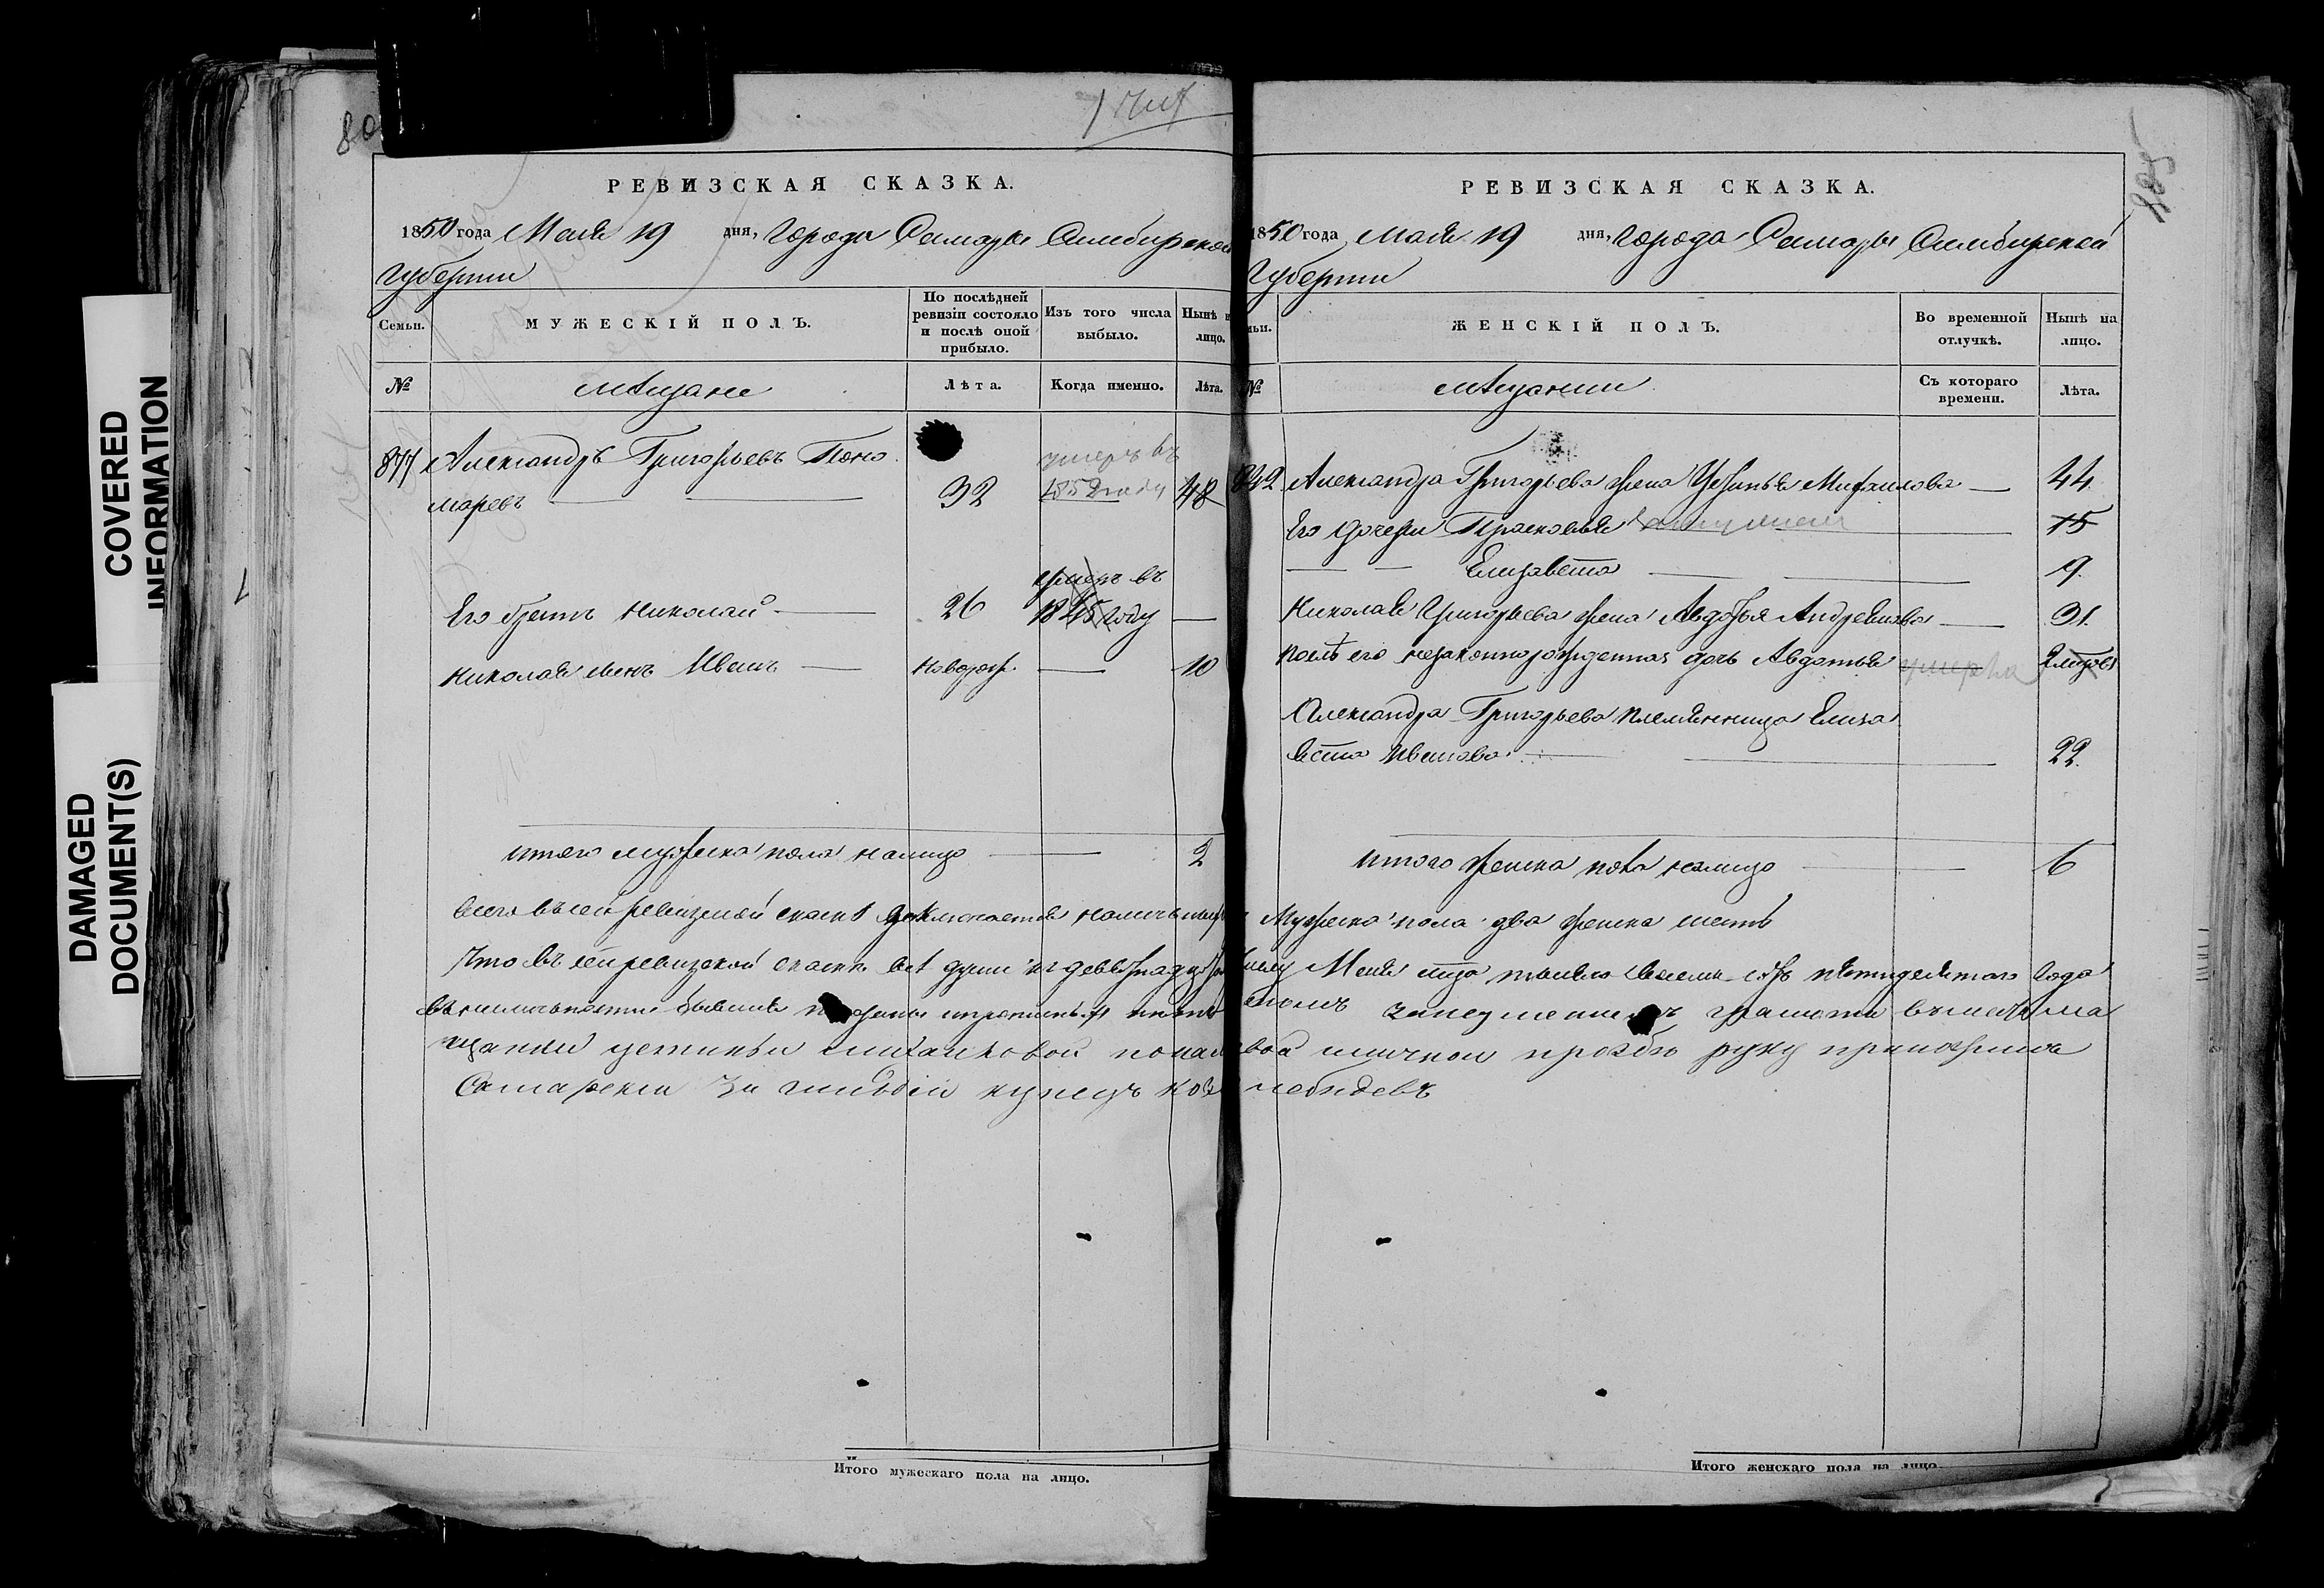 COVERED
INFORMATION
DAMAGED
DOCUMENT(S)
80
РЕВИЗСКАЯ СКАЗКА.
1850 года Маія 19 дня, города Самары Симбирской
Губернии
Семьи.
МУЖЕСКІЙ ПОЛЪ.
По послѣдней ревизіи состояло и послѣ оной прибыло.
Изъ того числа выбыло.
Нынѣ н лицо.
№
мѣщане
Лѣта.
Когда именно.
Лѣта.
877 Александръ Григорьевъ Поно
маревъ 32 умеръ въ 1852 году 48
Его братъ Николай 26 умеръ въ 1845 году
Николая сынъ Иванъ новорож. 10
итого мужеска пола налицо 2
РЕВИЗСКАЯ СКАЗКА.
1850 года Маія 19 дня, города Самары Симбирской
Губернии
ЖЕНСКІЙ ПОЛЪ.
Во временной отлучкѣ.
Нынѣ на лицо.
№
мѣщанки
Съ котораго времени.
Лѣта.
Александра Григорьева жена Устинья Михайлова 44
Его дочери Прасковья 15
Елизавета 9.
Николая Григорьева жена Авдотья Андреянова 31.
послѣ его незаконнорожденная дочь Авдотья умерла 2
Александра Григорьева племянница Елиза
вета Иванова 22.
итого женска пола налицо 6
всего въ сей ревизской сказкѣ заключается мужеска пола два женска шесть
Что въ сей ревизской сказкѣ всѣ души къ девятнадцатому Маія тысяча восемь сотъ пятидесятого года
въ наличности бывшие показаны
щанки устиньи михайловой по личной прозбѣ руку приложилъ
Самарской 3й гильдіи купецъ лебедевъ
Итого мужескаго пола на лицо.
Итого женскаго пола на лицо.